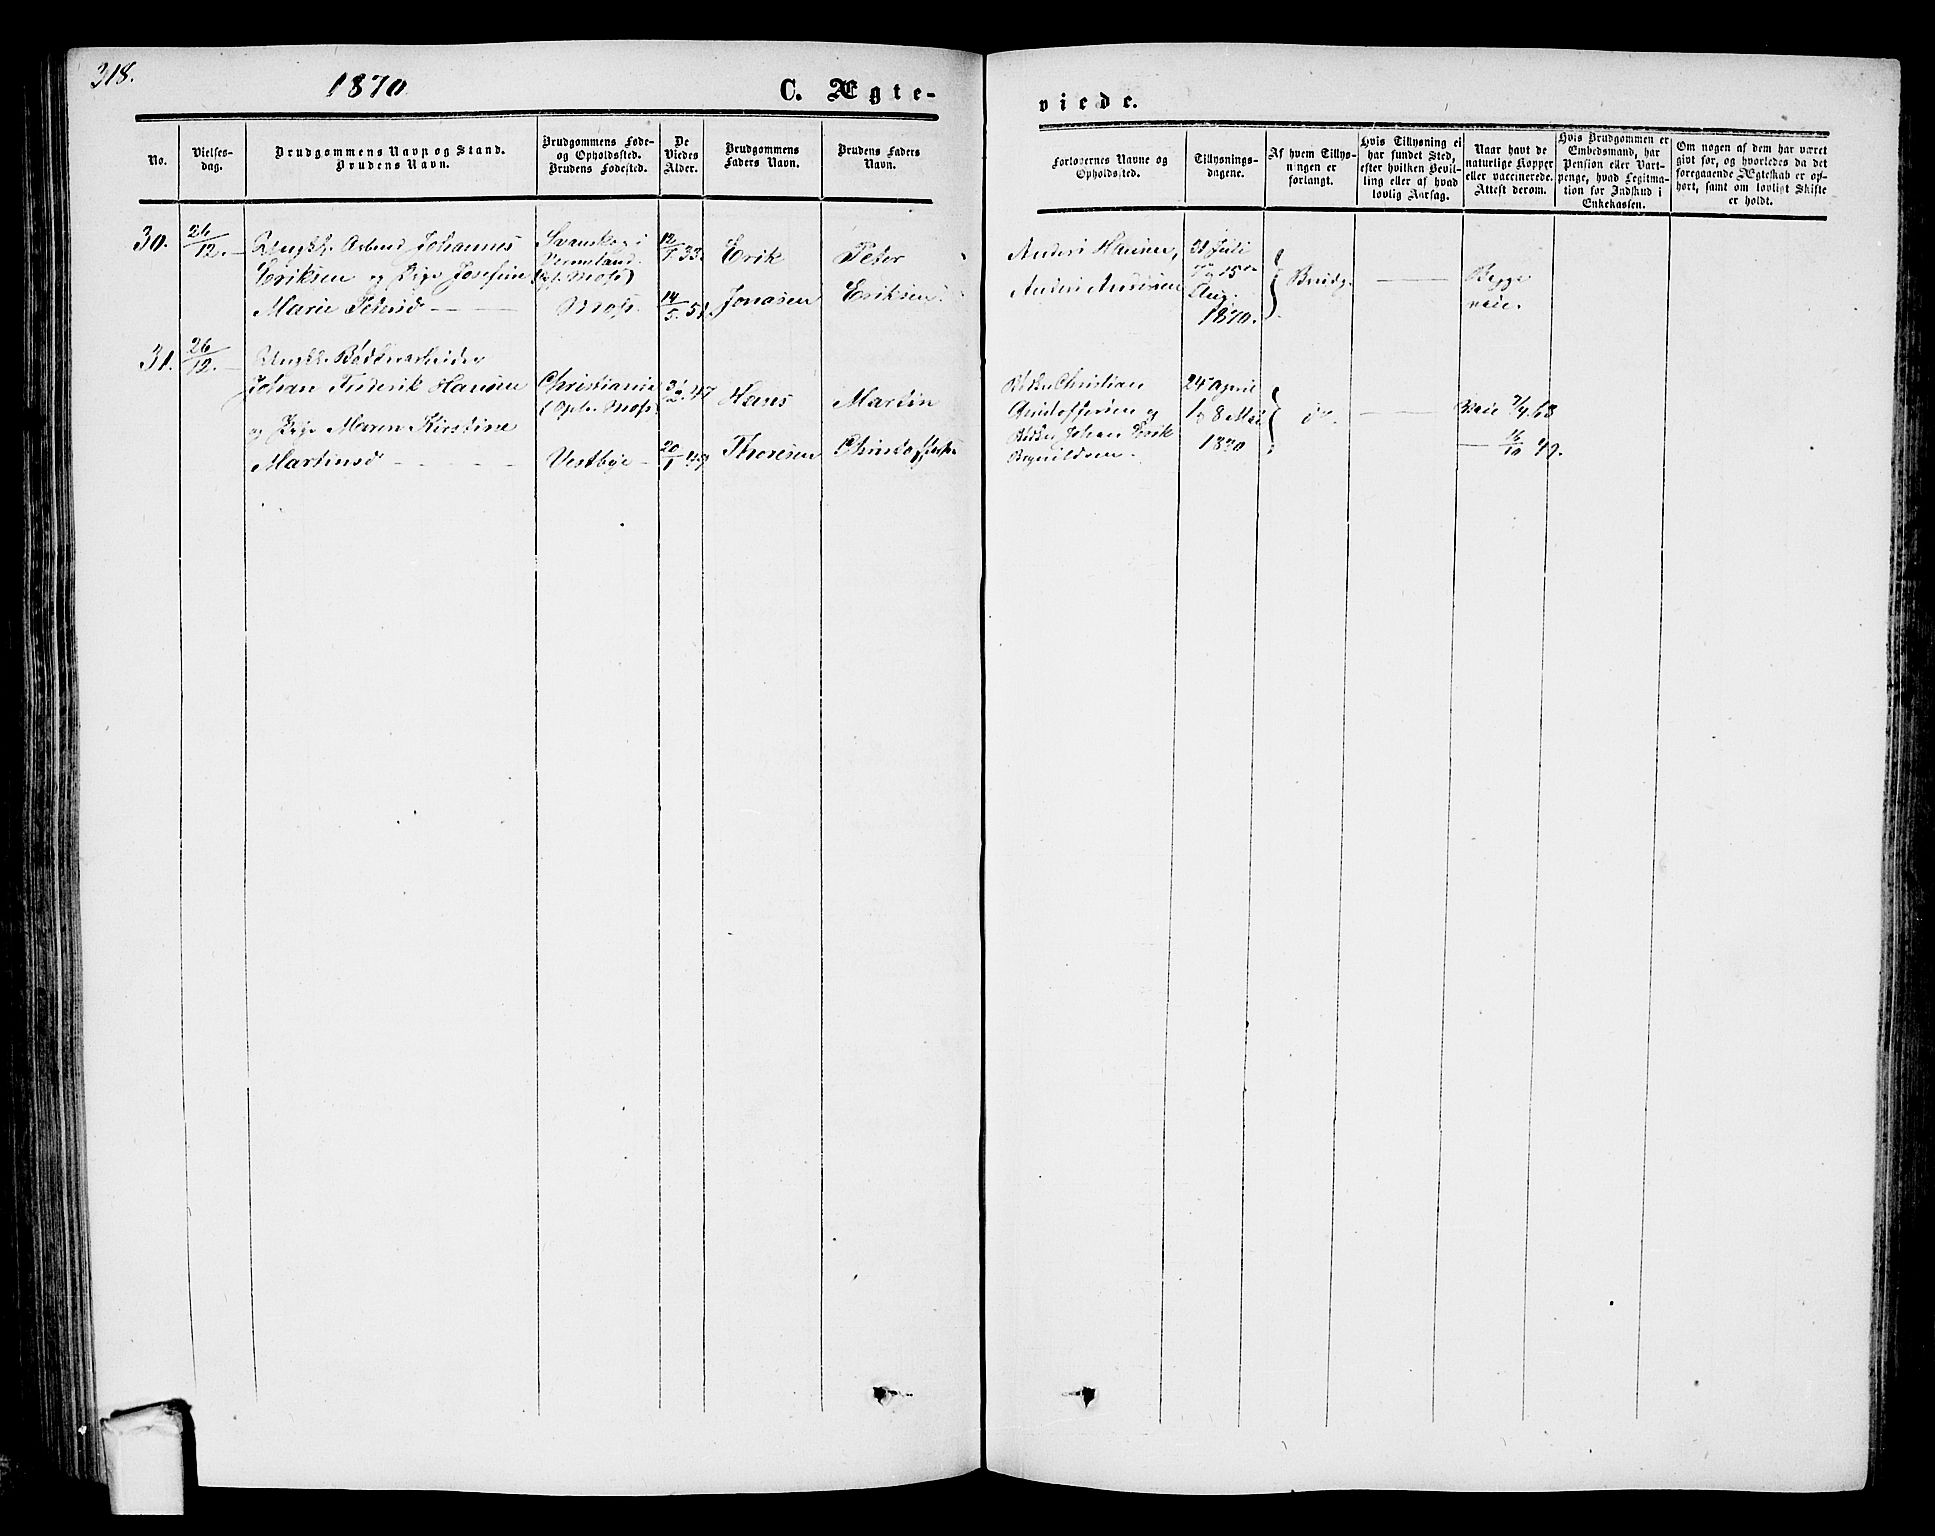 318.
1870
C. Ægte-
viede.
No.
Vielses-
dag.
Brudgommens Navn og Stand.
Brudens Navn.
Brudgommens Føde-
og Opholdssted.
Brudens Fødested.
De
Viedes
Alder.
Brudgommens
Faders Navn.
Brudens Faders
Navn.
Forlovernes Navne og
Opholdssted.
Tillysnings-
dagene.
Af hvem Tillys-
ningen er
forlangt.
Hvis Tillysning ei
har fundet Sted,
efter hvilken Bevil-
ling eller af hvad
lovlig Aarsag.
Naar havt de
naturlige Kopper
eller vaccinerede.
Attest derom.
Hvis Brudgommen er
Embedsmand, har
Pension eller Vart-
penge, hvad Legitima-
tion for Indskud i
Enkekassen.
Om nogen af dem har været
givt før, og hvorledes da det
foregaaende Ægteskab er op-
hørt, samt om lovligt Skifte
er holdt.
30.
26/12.
Ungk. Arbmd Johannes
Eriksen og Pige Josefine
Marie Pedersd
Svanskog i
Vermland
(opl. Moss)
Moss.
33.
14/5 51.
Erik
Jonasen
Peter
Eriksen
Anders Hansen,
Anders Andersen
Juli
Aug.
1870.
Brudg.
Begge
vacc.
31.
26/12.
Ungk. Bødkerarbeider
Johan Frederik Hansen
og Pige Maren Kirstine
Martinsd
Christiania
(Opl. Moss)
Vestbye
47
20/1 49
Hans
Thoresen
Martin
Christoffersen
Christian
Christoffersen og
Johan Erik
Brynildsen
24 April
1 og 8 Mai
1870
do.
Vacc 7/4 68
16/10 49.